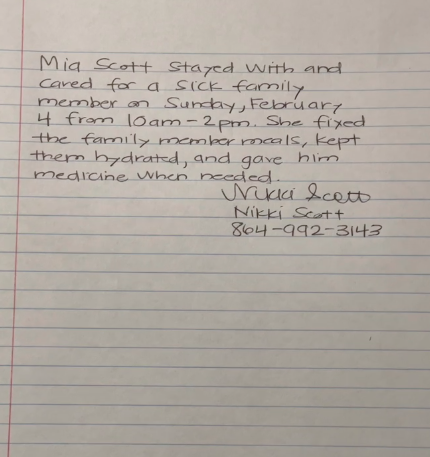 Mia Scott stayed with and
cared for a sick family
member on Sunday, February
4 from 10am-2pm. She fixed
the family member meals, kept
them hydrated, and gave him
medicine when needed.
Nikki Scott
Nikki Scott
864-992-3143